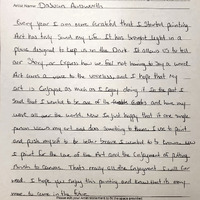 Artist Name: DaShun Ausworth
Every year I am more Grateful that I Started painting
Art has truly Saved my life. It has brought light in a
place designed to keep us in the Dark. It allows us to tell
our Story, or Express how we feel not having to Say a word.
Art earns a voice to the voiceless, and I hope that my
art is Enjoyed as much as I Enjoy doing it In the past I
said that I wanted to be one of the Greats and have my
work all over the world. Now Im just happy that a single
person see's my art and does something to them. I use to paint
and push myself to be better because I wanted to be Now
I paint for the love of the Art and the Enjoyment of putting
Brush to Canvas. That's really all the Enjoyment I will for
need. I hope you Enjoy this painting and know that its many
more to come in the future.